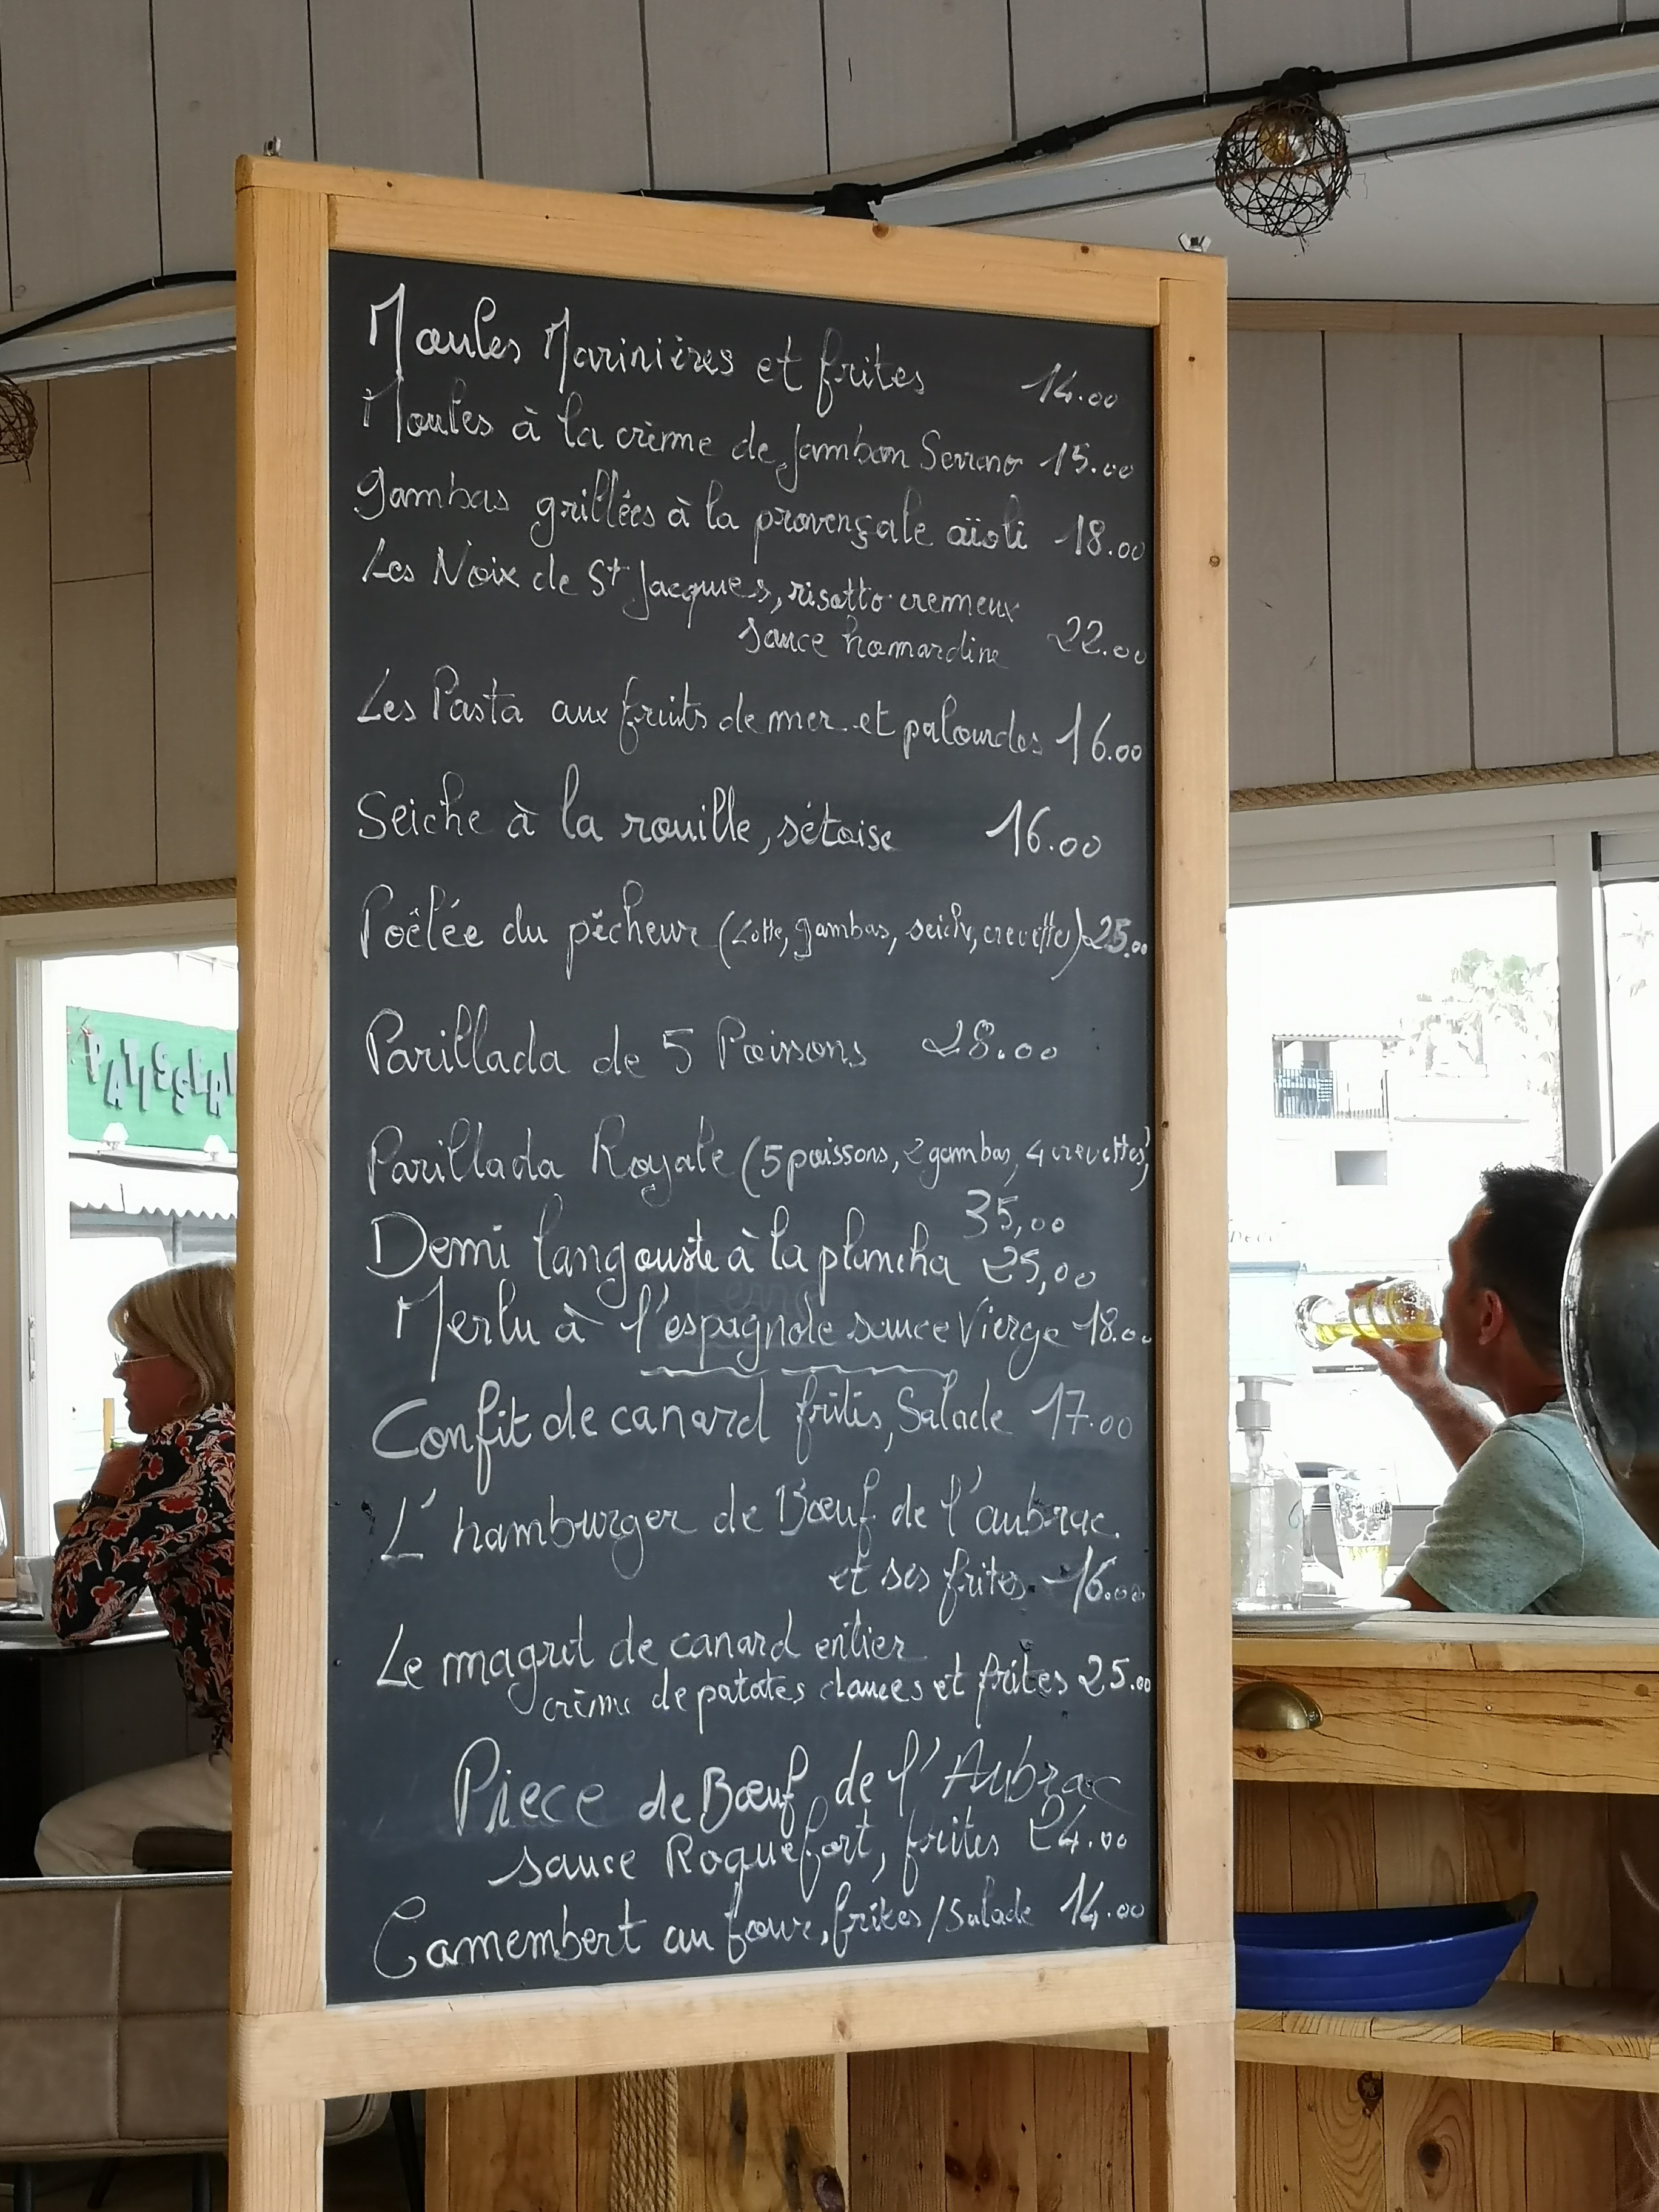 Moules Marinières et frites 14.00
Moules à la crème de Jambon Serrano 15.00
Gambas grillées à la provençale aïoli 18.00
Les Noix de St Jacques, risotto cremeux
sauce homardine 22.00
Les Pasta aux fruits de mer et palourdes 16.00
Seiche à la rouille, sétoise 16.00
Poêlée du pêcheur (Lotte, gambas, seiche, crevette) 25.00
Parillada de 5 Poissons 28.00
Parillada Royale (5 poissons, 2 gambas, 4 crevettes)
35,00
Demi langouste à la plancha 25,00
Merlu à l'espagnole sauce Vierge 18.00
Confit de canard frites, Salade 17.00
L'hamburger de Bœuf de l'aubrac.
et ses frites. 16.00
Le magret de canard entier
crème de patates douces et frites 25.00
Piece de Bœuf de l'Aubrac
sauce Roquefort, frites 24.00
Camembert au four, frites/Salade 14.00